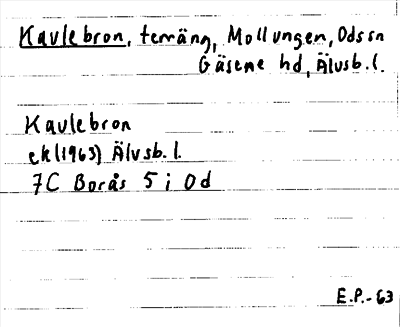 Kavlebron, terräng, Mollungen, Ods sn
Gäsene hd, Älvsb. l.
Kavlebron
ek (1963) Älvsb. l.
7C Borås 5 i Od
E.P.-63